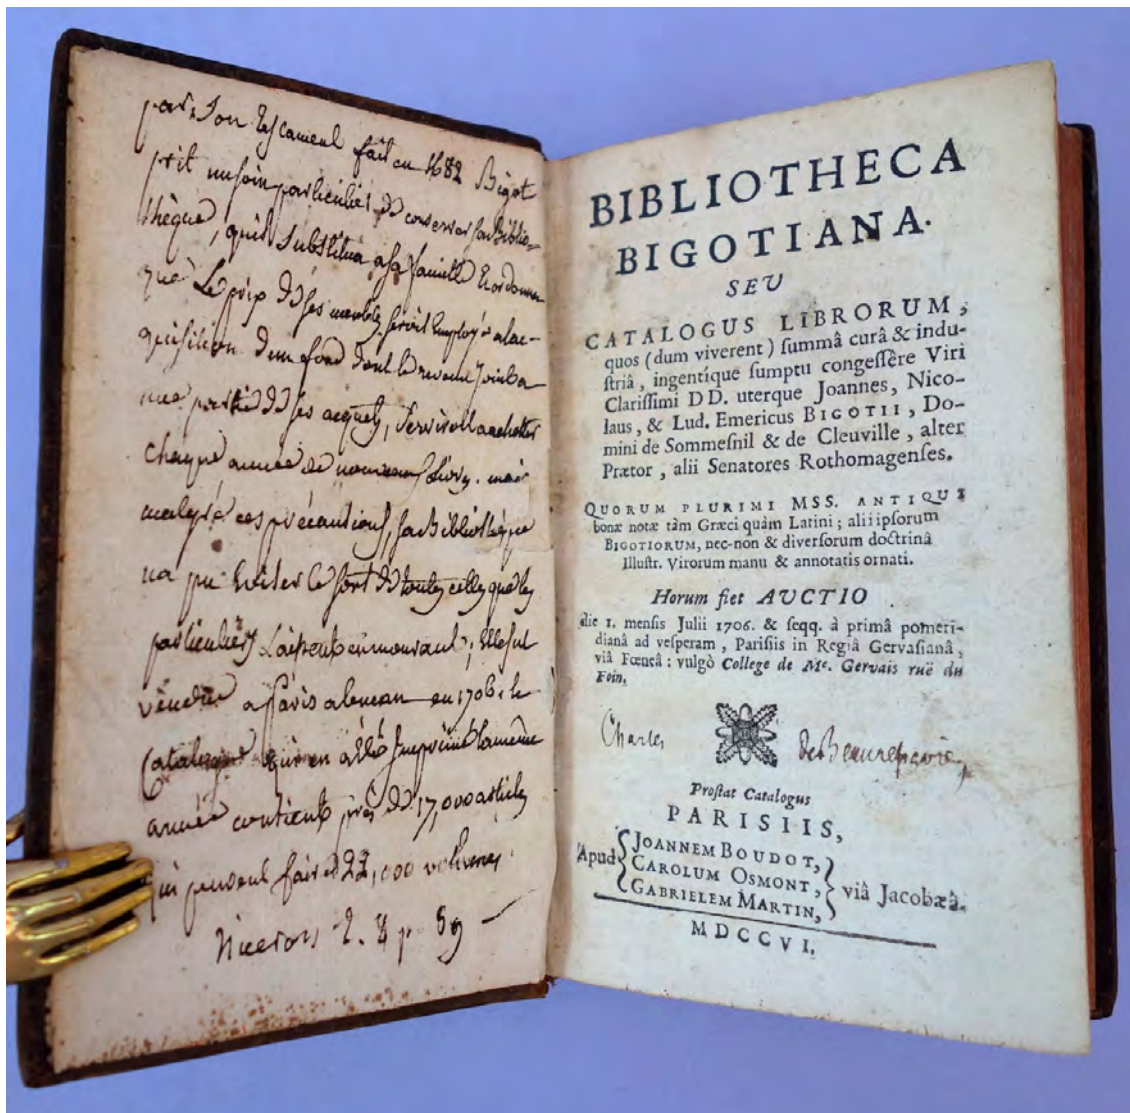 par son testament fait en 1682 Bigot
prit un soin particulier de conserver sa Biblio=
thèque, qu'il substitua a sa famille & ordonna
que Le prix de ses meubles seroit Employé a lac-
quisition d'un fond dont le revenu joint a
une partie de ses acquets, serviroit a acheter
chaque année de nouveaux Livres. mais
malgré ces précautions, sa Bibliothèque
na pu Eviter le sort de toutes celles que les
particuliers Laissent en mourant; Elle fut
vendue a Paris a lencan en 1706. le
Catalogue qui en a été Imprimé la même
année contient près de 17,000 articles
qui peuvent faire 22,000 volumes.
Niceron t. 8 p 89
BIBLIOTHECA
BIGOTIANA.
SEU
CATALOGUS LIBRORUM,
quos (dum viverent) ſummâ curâ & indu-
ſtriâ, ingentíque ſumptu congeſſêre Viri
Clariſſimi DD. uterque Joannes, Nico-
laus, & Lud. Emericus BIGOTII, Do-
mini de Sommeſnil & de Cleuville, alter
Prætor, alii Senatores Rothomagenſes.
QUORUM PLURIMI MSS. ANTIQUÆ
bonæ notæ tàm Græci quàm Latini; alii ipſorum
BIGOTIORUM, nec-non & diverſorum doctrinâ
Illuſtr. Virorum manu & annotatis ornati.
Horum fiet AUCTIO
die 1. menſis Julii 1706. & ſeqq. à primâ pomeri-
dianâ ad veſperam, Pariſiis in Regiâ Gervaſianâ,
viâ Fœneâ: vulgò College de Me. Gervais ruë du
Foin.
Charles de Beaurepaire
Proſtat Catalogus
PARISIIS,
Apud { JOANNEM BOUDOT,
CAROLUM OSMONT,
GABRIELEM MARTIN, } viâ Jacobæâ.
MDCCVI.